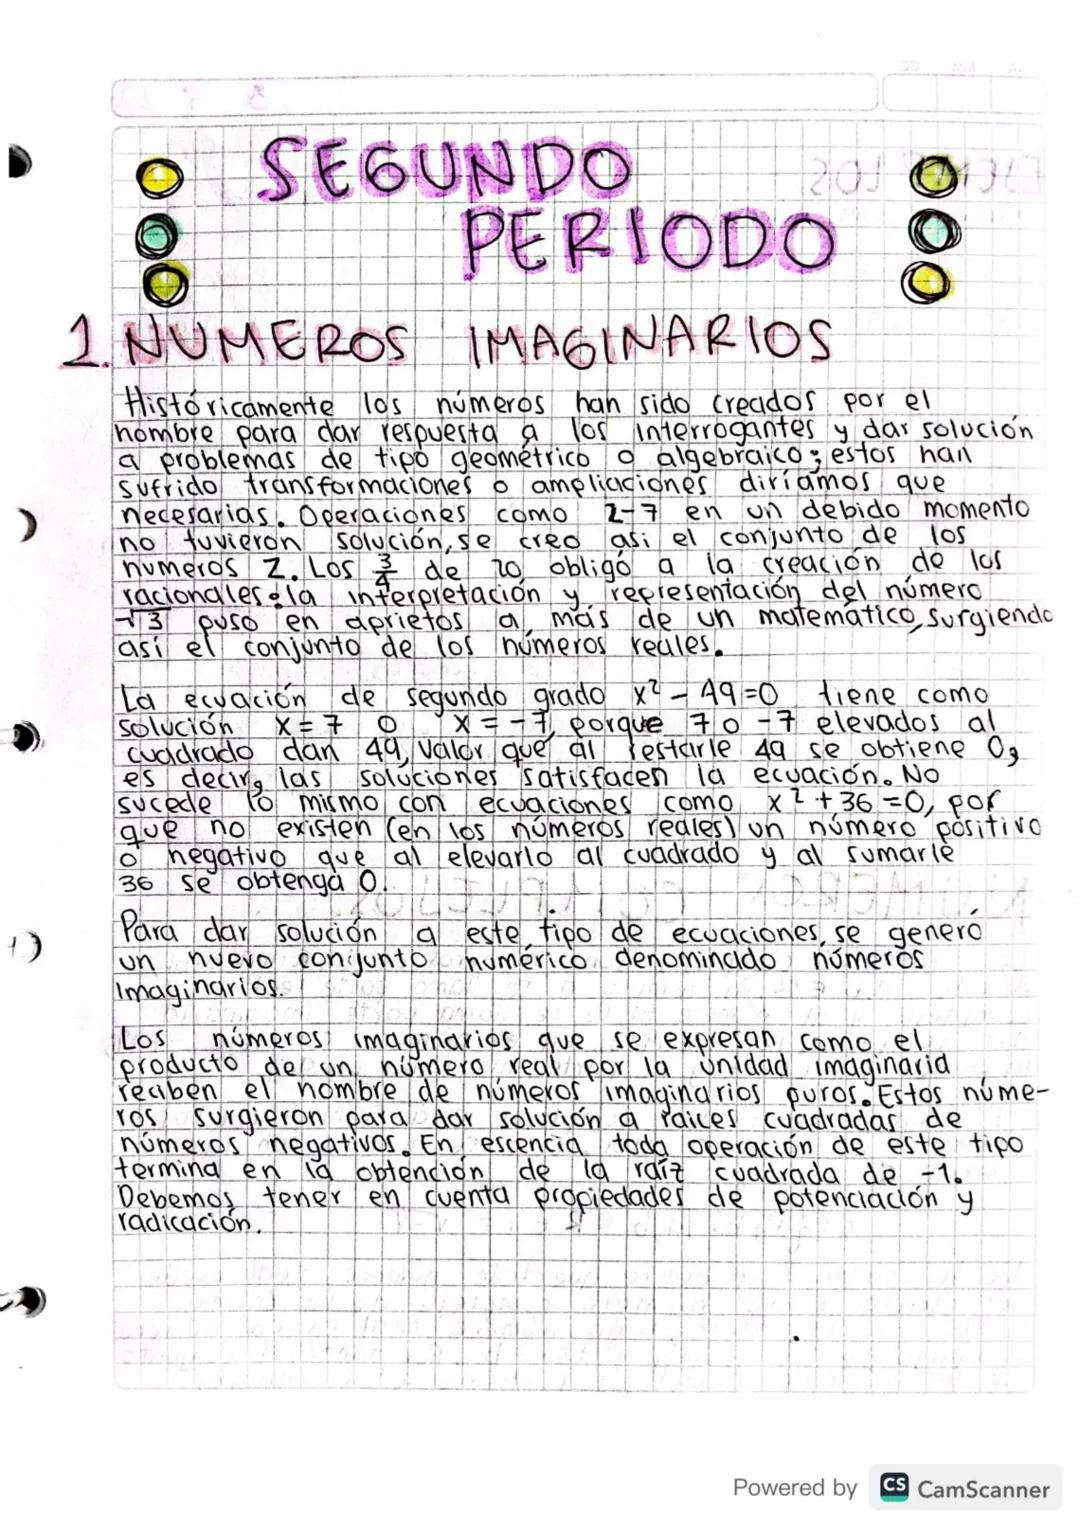 SEGUNDO
PERIODO
1. NUMEROS IMAGINARIOS
Históricamente los números han sido creados por el
hombre para dar respuesta a los interrogantes y dar solución
a problemas de tipo geométrico o algebraico; estos han
sufrido transformaciones o ampliaciones diríamos que
necesarias. Operaciones como 2-7 en un debido momento
no tuvieron solución, se creo asi el conjunto de los
numeros Z. Los 3/4 de 20 obligó a la creación de los
racionales; la interpretación y representación del número
√3 puso en aprietos a más de un matemático, surgiendo
así el conjunto de los números reales.
La ecuación de segundo grado x² - 49=0 tiene como
solución x = 7 o x = -7, porque 7 o -7 elevados al
cuadrado dan 49, valor que al restarle 49 se obtiene 0,
es decir, las soluciones satisfacen la ecuación. No
sucede lo mismo con ecuaciones como x² + 36 =0, por
que no existen (en los números reales) un número positivo
o negativo que al elevarlo al cuadrado y al sumarle
36 se obtenga 0.
Para dar solución a este tipo de ecuaciones, se generó
un nuevo conjunto numérico denominado números
imaginarios.
Los números imaginarios que se expresan como el
producto de un número real por la unidad imaginaria
reciben el nombre de números imaginarios puros. Estos núme-
ros surgieron para dar solución a raices cuadradas de
números negativos. En escencia toda operación de este tipo
termina en la obtención de la raíz cuadrada de -1.
Debemos tener en cuenta propiedades de potenciación y
radicación.
Powered by CS CamScanner